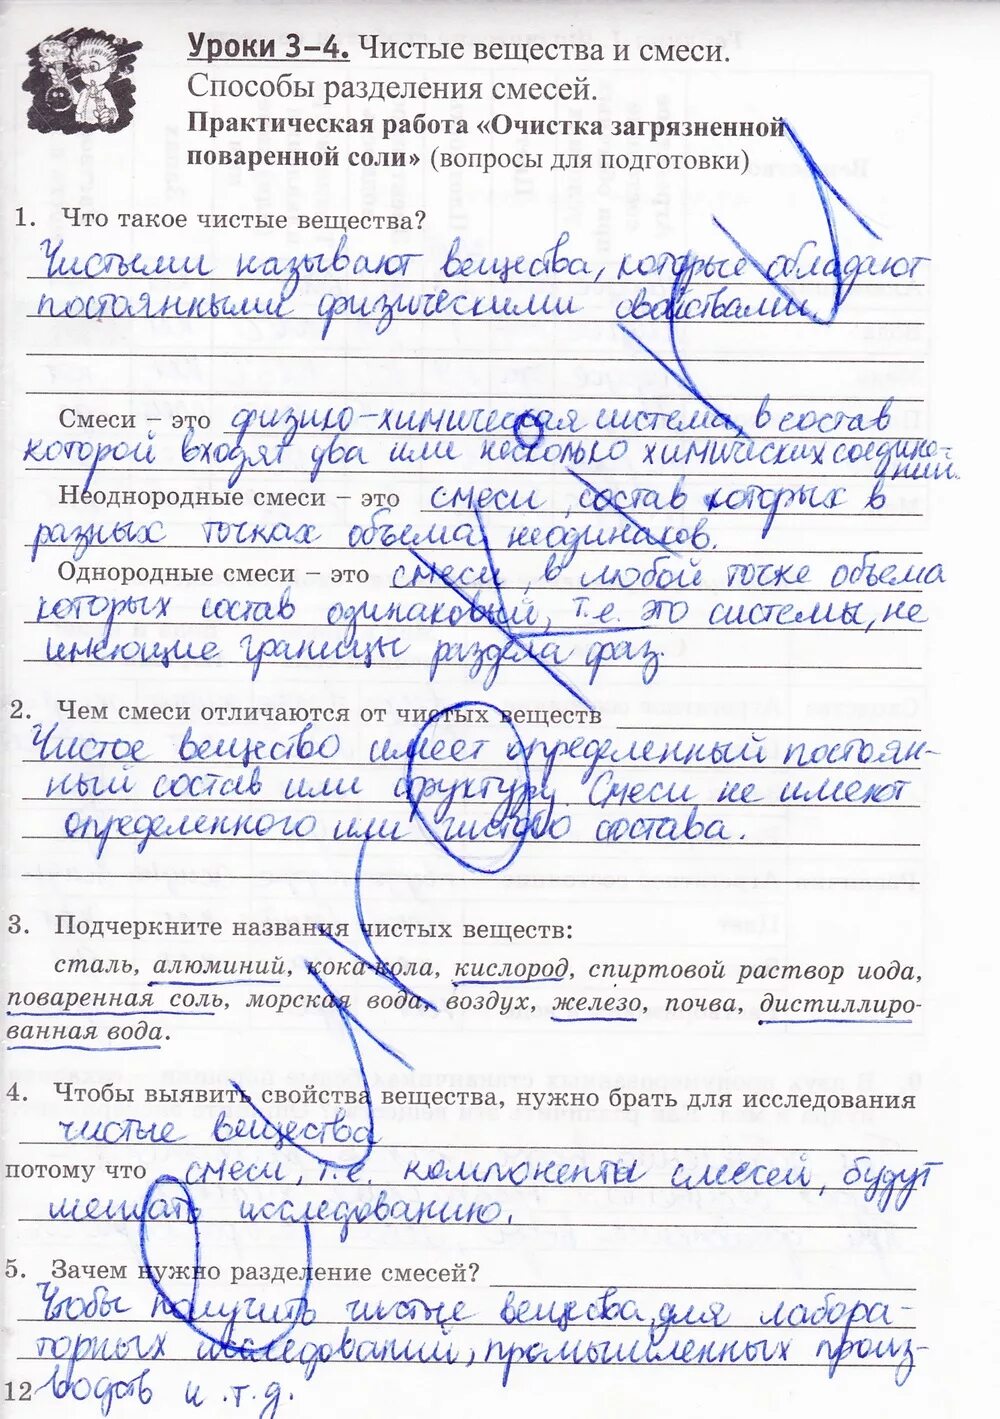 Уроки 3–4. Чистые вещества и смеси.
Способы разделения смесей.
Практическая работа «Очистка загрязненной
поваренной соли» (вопросы для подготовки)
1. Что такое чистые вещества?
Чистыми называют вещества, которые обладают
постоянными физическими свойствами.
Смеси – это физико-химическая система, в состав
которой входят два или несколько химических соедине-
ний.
Неоднородные смеси – это смеси, состав которых в
разных точках объема неодинаков.
Однородные смеси – это смеси, в любой точке объема
которых состав одинаковый, т.е. это системы, не
имеющие границы раздела фаз.
2. Чем смеси отличаются от чистых веществ
Чистое вещество имеет определенный постоян-
ный состав или структуру. Смеси не имеют
определенного или чистого состава.
3. Подчеркните названия чистых веществ:
сталь, алюминий, кока-кола, кислород, спиртовой раствор иода,
поваренная соль, морская вода, воздух, железо, почва, дистиллиро-
ванная вода.
4. Чтобы выявить свойства вещества, нужно брать для исследования
чистые вещества
потому что смеси, т.е. компоненты смессей, будут
мешать исследованию.
5. Зачем нужно разделение смесей?
Чтобы получить чистые вещества для лабора-
торных исследований, промышленных произ-
12 водств и т.д.